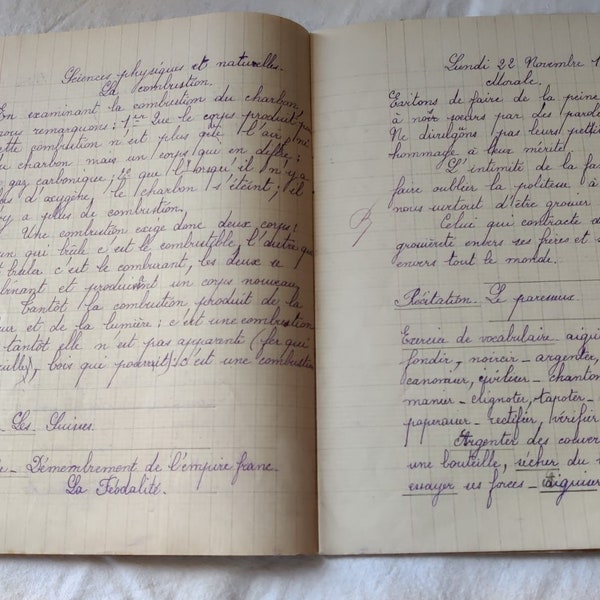 Sciences physiques et naturelles.
La combustion.
En examinant la combustion du charbon,
nous remarquons : 1er Que le corps produit par
cette combustion n'est plus que l'air, ni
du charbon mais un corps qui en diffère,
gaz carbonique ; 2e que l'lorsqu'il n'y a
plus d'oxygène, le charbon s'éteint ; il
n'y a plus de combustion.
Une combustion exige donc deux corps :
un qui brûle c'est le combustible, l'autre qui
brûler c'est le comburant, les deux se
combinant et produisent un corps nouveau,
Tantôt la combustion produit de la
et de la lumière : c'est une combustion
tantôt elle n'est pas apparente (fer qui
rouille), bois qui pourrait) : c'est une combustion
Les Suisses.
Démembrement de l'empire franc.
La Féodalité.
Lundi 22 Novembre 1
Morale.
Évitons de faire de la peine
à nos sœurs par des parol
Ne direlgons pas leurs petit
hommage à leur mérite.
L'intimité de la fa
faire oublier la politesse à
nous surtout d'être grossier
Celui qui contracte d
grossièreté envers ses frères et s
envers tout le monde.
Récitation. Le paresseux.
Exercice de vocabulaire aigui
fondir, noircir - argenter,
chanton
manier - clignoter, tapoter -
paperasser - rectifier, vérifier
Argenter des couver
une bouteille, sécher du
essayer ses forces - aiguiser